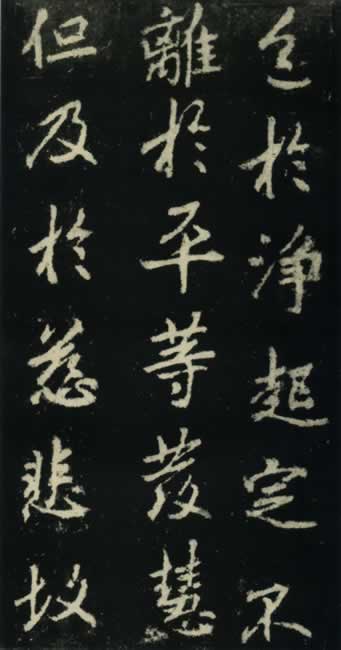 於淨起定不
離於平等發慧
但及於慈悲故